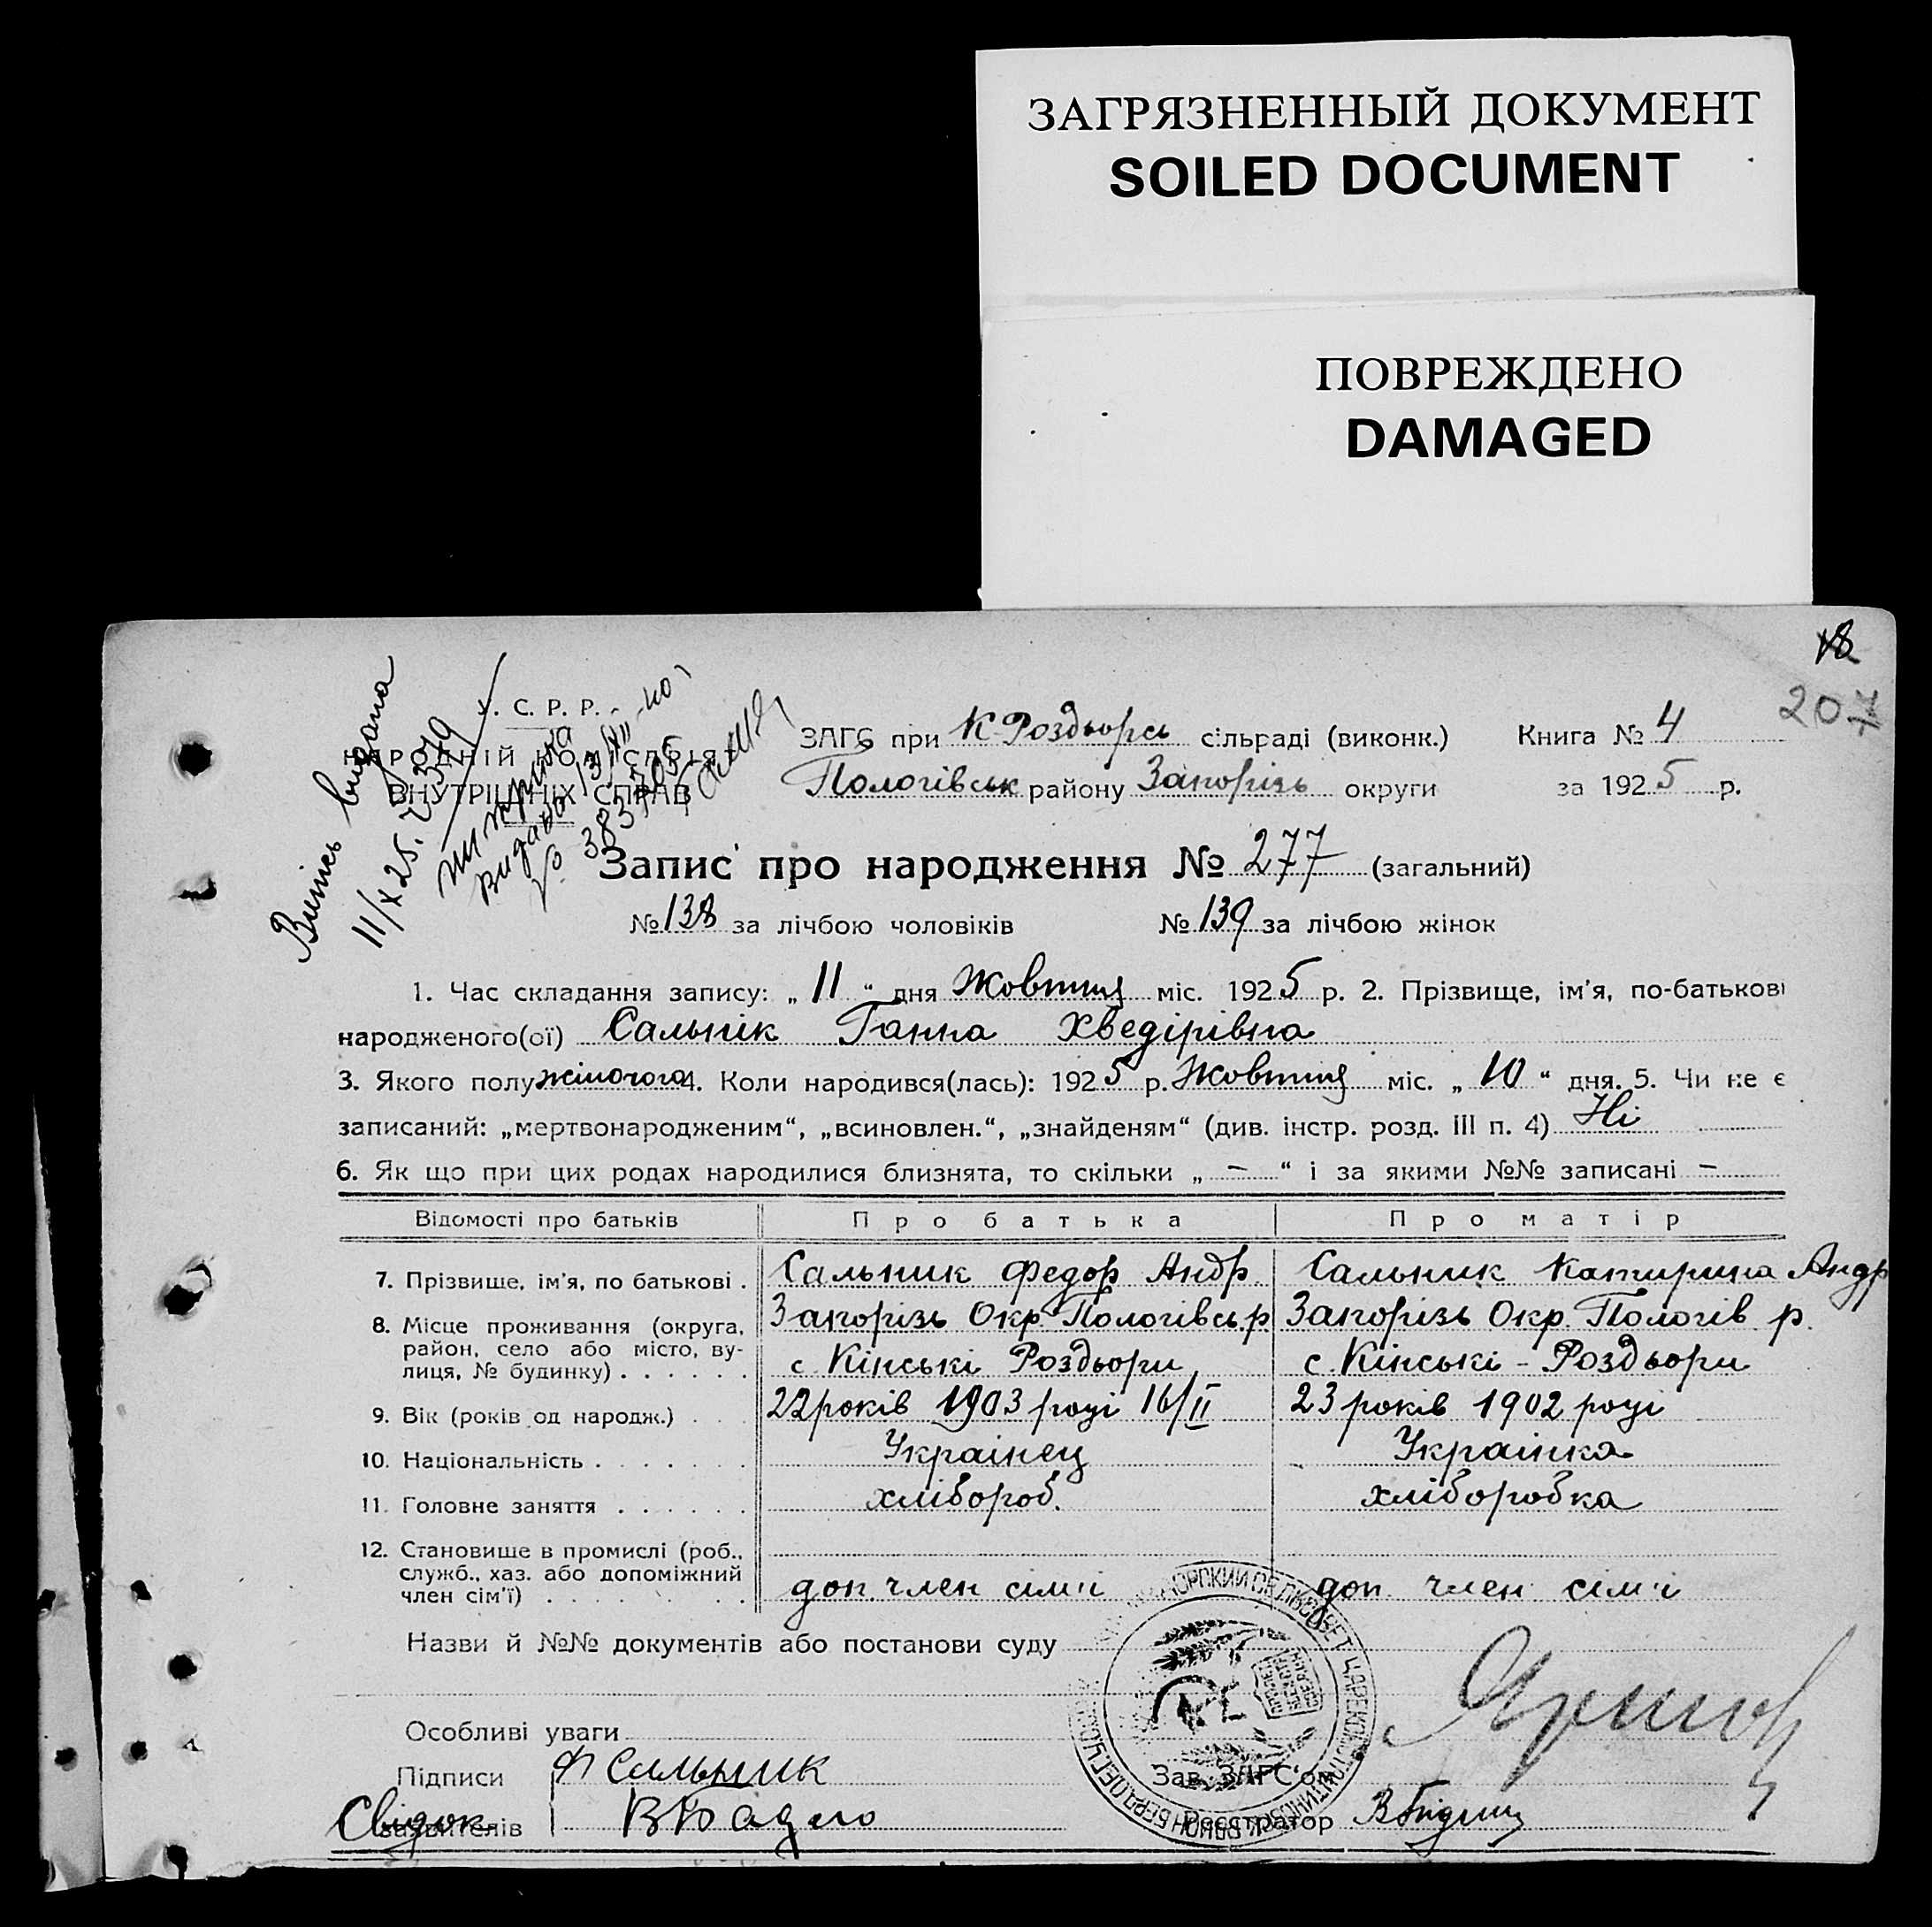 ЗАГРЯЗНЕННЫЙ ДОКУМЕНТ
SOILED DOCUMENT
ПОВРЕЖДЕНО
DAMAGED
18
207
Випись видана
11/X 25.
У. С. Р. Р.
НАРОДНІЙ КОМІСАРІЯТ
ВНУТРІШНІХ СПРАВ
ЗАГС при К-Роздорсь сільраді (виконк.) Книга № 4
Пологівськ району Запорізь округи за 1925 р.
Запис про народження № 277 (загальний)
№ 138 за лічбою чоловіків № 139 за лічбою жінок
1. Час складання запису: „ 11 “ дня Жовтня міс. 1925 р. 2. Прізвище, ім’я, по-батькові
народженого(ої) Сальнік Ганна Хведірівна
3. Якого полу жіночого 4. Коли народився(лась): 1925 р. Жовтня міс. „ 10 “ дня. 5. Чи не є
записаний: „мертвонародженим“, „всиновлен.“, „знайденям“ (див. інстр. розд. III п. 4) Ні
6. Як що при цих родах народилися близнята, то скільки „ – “ і за якими №№ записані –
Відомості про батьків Про батька Про матір
7. Прізвише, ім’я, по батькові . Сальник Федор Андр. Сальник Катирина Андр
8. Місце проживання (округа, район, село або місто, вулиця, № будинку) . . . . . . Запорізь Окр. Пологівсь.р Запорізь Окр. Пологів р.
с. Кінські Роздьори с. Кінські - Роздьори
9. Вік (років од народж.) . . . 22 років 1903 році 16/II 23 років 1902 році
10. Національність . . . . . . . Українец Українка
11. Головне заняття . . . . . . хлібороб. хліборобка
12. Становише в промислі (роб., служб., хаз. або допоміжний член сім’ї) . . . . . . . . доп. член сім'ї доп. член сім'ї
Назви й №№ документів або постанови суду
Особливі уваги
Підписи Ф Сальник Зав. ЗАГС‘ом
Свідок заявителів Реєстратор